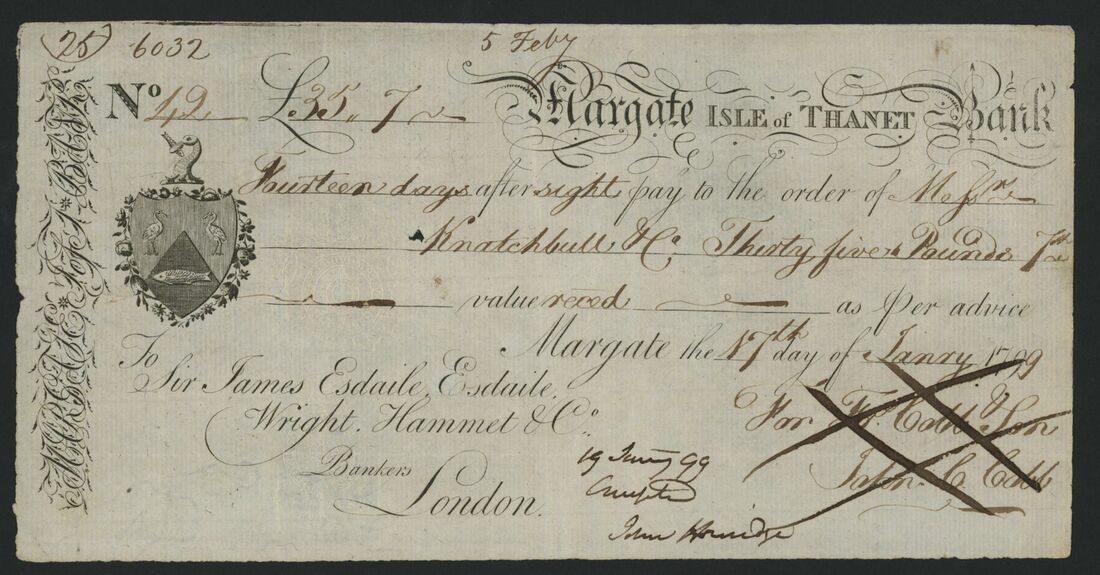 25 6032 5 Feby
No 42 £35 " 7 Margate ISLE of THANET Bank
Fourteen days after sight pay to the order of Messrs
Knatchbull & Co. Thirty five Pounds 7
value reced as per advice
Margate the 17th day of Janry 1799
To
Sir James Esdaile, Esdaile,
Wright, Hammet & Co.
Bankers
London.
For Fs. Cobb & Son
John C Cobb
19 Janry 99
Accepted
John